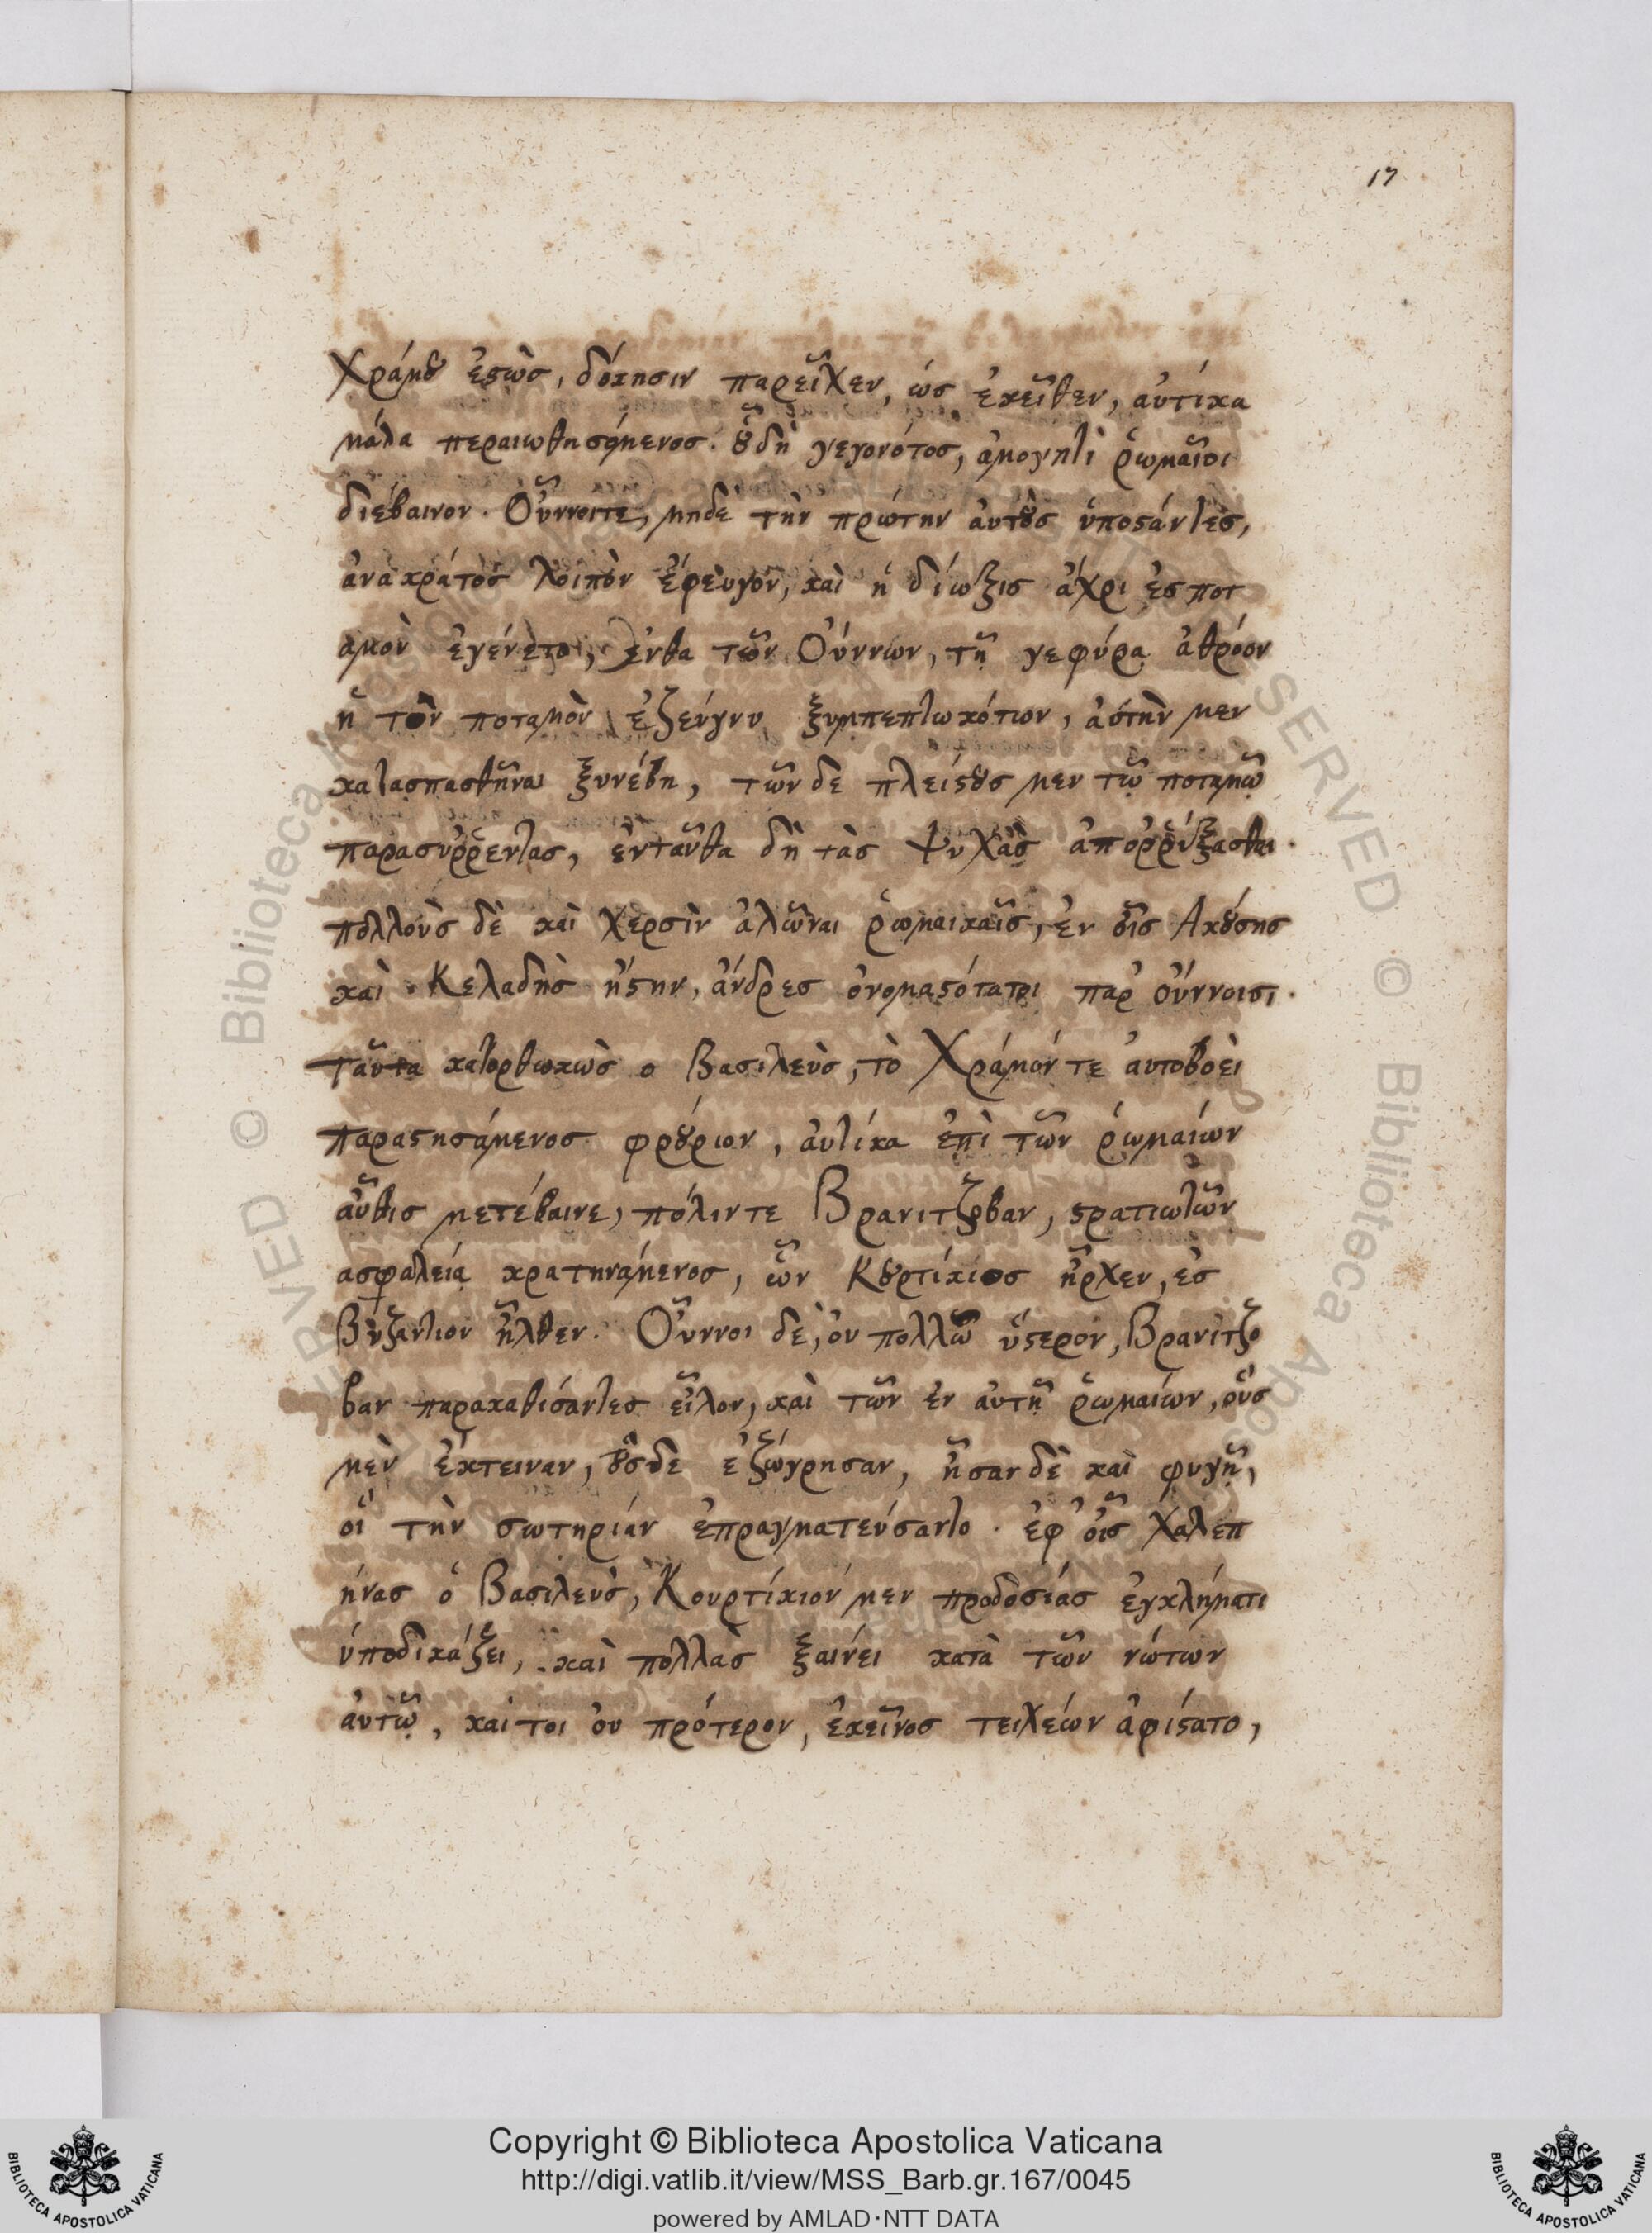 17
Χράμου ἑστὼς, δόκησιν παρεῖχεν, ὡς ἐκεῖθεν, αὐτίκα
μάλα περαιωθησόμενος. οὗ δὴ γεγονότος, ἀμογητὶ ῥωμαῖοι
διέβαινον. Οὖννοιτε, μηδε τὴν πρώτην αὐτοὺς ὑποστάντες,
ἀνα κράτος λοιπὸν ἔφευγον, καὶ ἡ δίωξις ἄχρι ἐς ποτ
αμὸν ἐγένετο, ἔνθα τῶν Οὔννων, τῇ γεφύρᾳ ἀθρόον
ἣ τὸν ποταμὸν ἐζεύγνυ ξυμπεπτωκότων, ἀυτὴν μεν
κατασπασθῆναι ξυνέβη, τῶν δε πλείστους μεν τῷ ποταμῷ
παρασυῤῥέντας, ἐνταῦθα δὴ τὰς ψυχὰς ἀποῤῥύξασθαι.
πολλοὺς δὲ καὶ χερσὶν ἁλῶναι ῥωμαικαῖς, ἐν οἷς Ακούσης
καὶ Κελαδὴς ἤστην, ἄνδρες ὀνομαστότατοι παρ' οὔννοισι.
ταῦτα κατορθωκὼς ο Βασιλεὺς, τὸ Χράμόν τε αυτοβοεὶ
παραστησάμενος φρούριον, ἀυτίκα ἐπὶ τῶν ῥωμαίων
αὖθις μετέβαινε, πόλιν τε Βρανιτζοβαν, στρατιωτῶν
ασφαλείᾳ κρατηνάμενος, ὧν Κουρτίκιος ἦρχεν, ἐς
Βυζαντιον ἦλθεν. Οὖννοι δὲ, ὀυ πολλῶ ὕστερον, Βρανίτζο
βαν παρακαθίσαντες εἷλον, καὶ τῶν ἐν ἀυτῇ ῥωμαίων, οὓς
μὲν ἔκτειναν, οὓς δε ἐζώγρησαν, ἦσαν δὲ καὶ φυγῇ,
οἳ τὴν σωτηρίαν ἐπραγματεύσαντο. ἐφ' οἷς χαλεπ
ήνας ὁ Βασιλεὺς, Κουρτίκιον μεν προδοσίας ἐγκλήματι
ὑποδικάζει, καὶ πολλὰς ξαίνει κατὰ τῶν νώτων
ἀυτῷ, καίτοι ὀυ πρότερον, ἐκεῖνος τειχεών ἀφίστατο,
Copyright © Biblioteca Apostolica Vaticana
http://digi.vatlib.it/view/MSS_Barb.gr.167/0045
powered by AMLAD·NTT DATA